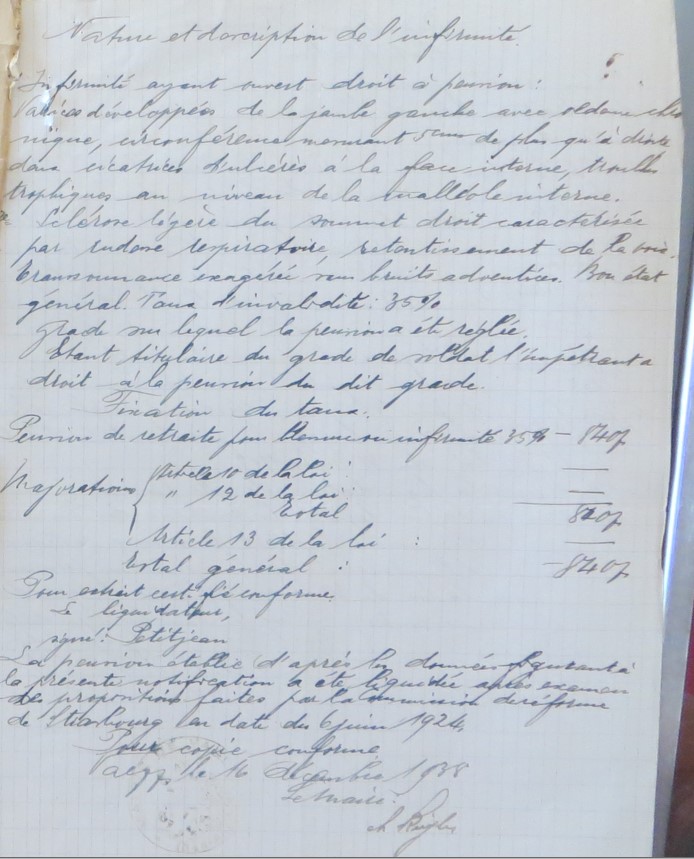 Nature et description de l'infirmité.
Infirmité ayant ouvert droit à pension :
Varices développées de la jambe gauche avec oedème chro
nique, circonférence mesurant 5cm de plus qu'à droite
deux cicatrices d'ulcères à la face interne, troubles
trophiques au niveau de la malléole interne.
Sclérose légère du sommet droit caractérisée
par rudesse respiratoire, retentissement de la voix.
transsonnance exagérée sans bruits adventices. Bon état
général. Taux d'invalidité : 35%
Grade sur lequel la pension a été réglée.
Etant titulaire du grade de soldat l'impétrant a
droit à la pension du dit grade.
Fixation du taux.
Pension de retraite pour blessure ou infirmité 35% - 840f
Majorations { Article 10 de la loi : —
" 12 de la loi : —
Total 840f
Article 13 de la loi : —
Total général : - 840f
Pour extrait cert. fié conforme.
Le liquidateur,
signé : Petitjean
La pension établie d'après les données figurant à
la présente notification a été liquidée après examen
des propositions faites par la commission de réforme
de Strasbourg en date du 6 juin 1924.
Pour copie conforme
le 16 décembre 1938
Le Maire :